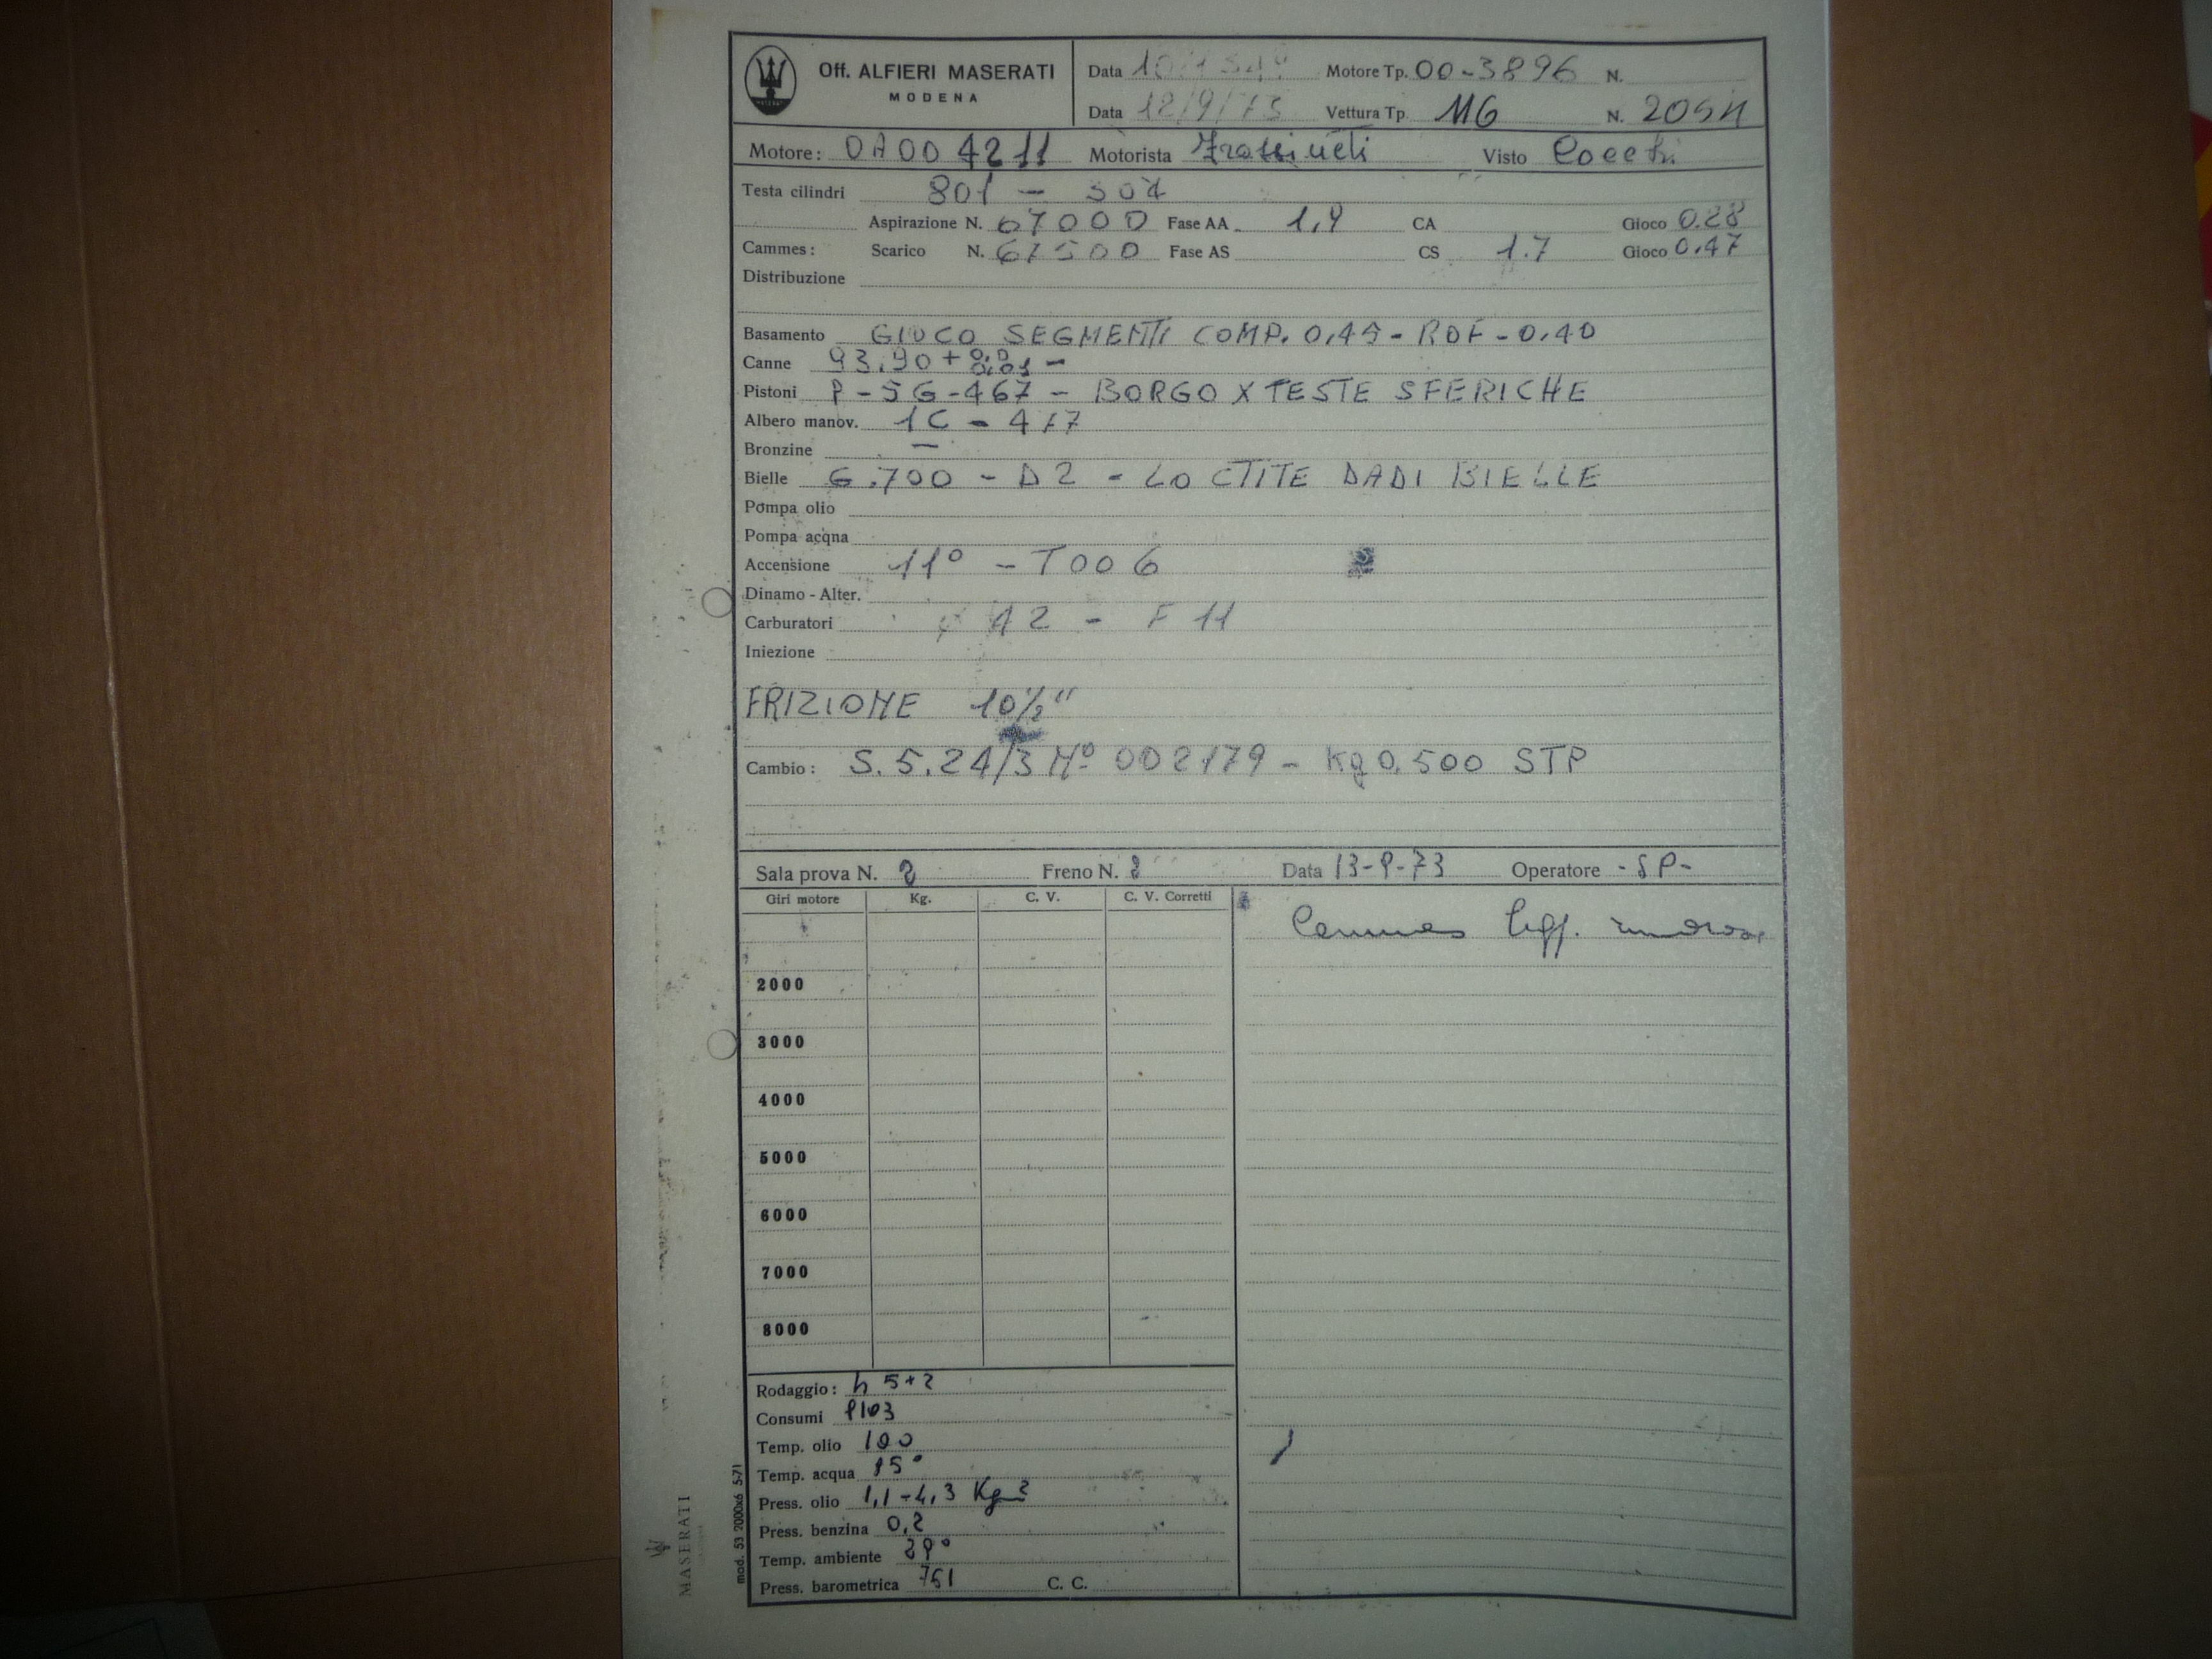 Off. ALFIERI MASERATI
MODENA
Data Motore Tp. 00-3896 N.
Data 12/9/73 Vettura Tp. 116 N.
Motore: 0A00 4211 Motorista Visto
Testa cilindri 801 -
Aspirazione N. 67000 Fase AA 1,9 CA Gioco 0.28
Cammes: Scarico N. 67500 Fase AS CS 1.7 Gioco 0.47
Distribuzione
Basamento GIOCO SEGMENTI COMP. 0,45 - ROF - 0,40
Canne 93.90 +
Pistoni P-SG-467 - BORGO X TESTE SFERICHE
Albero manov. 1C - 477
Bronzine -
Bielle G.700 - D2 - LOCTITE DADI BIELLE
Pompa olio
Pompa acqna
Accensione 11° - T006
Dinamo - Alter.
Carburatori 42 - F 11
Iniezione
FRIZIONE 10½"
Cambio: S.5.24/3 N° 002179 - Kg 0.500 STP
Sala prova N. 2 Freno N. 2 Data 13-9-73 Operatore -SP-
Giri motore Kg. C. V. C. V. Corretti
Cammes legg.
2000
3000
4000
5000
6000
7000
8000
Rodaggio: h 5+2
Consumi
Temp. olio 100
Temp. acqua
Press. olio 1,1-4,3
Press. benzina 0,2
Temp. ambiente
Press. barometrica 761 C. C.
mod. 53 2000x6 5-71
MASERATI